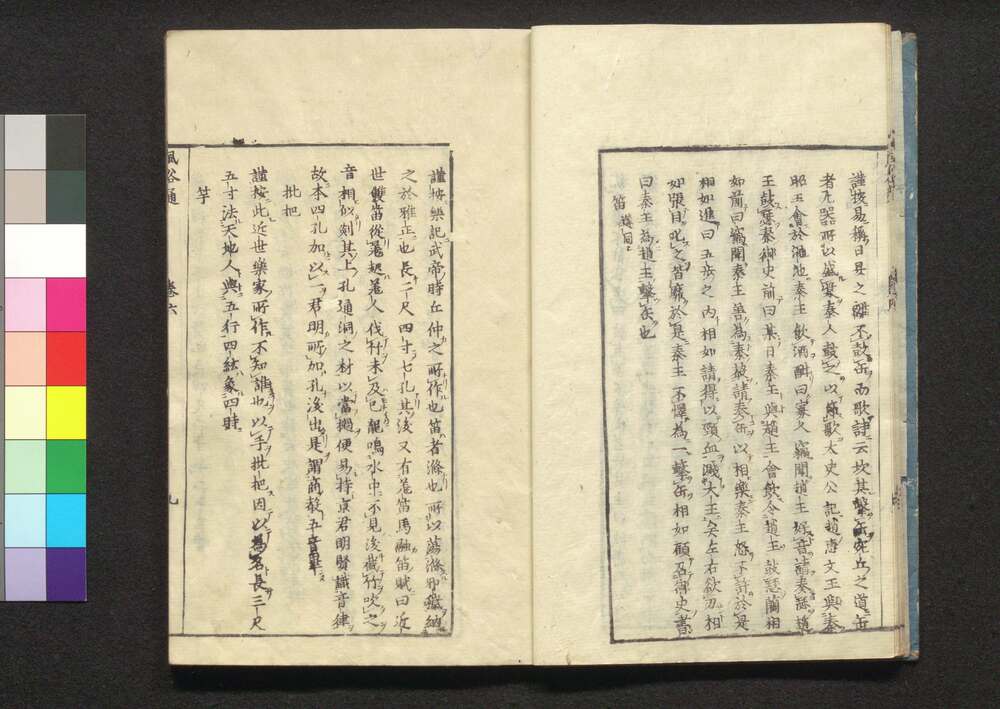 謹按易稱日昃之離不鼓缶而歌詩云坎其擊缶宛丘之道缶
者瓦器所以盛漿秦人鼓之以節歌太史公記趙惠文王與秦
昭王會於澠池秦王飲酒酣曰寡人竊聞趙王好音請奏瑟趙
王鼓瑟秦御史前曰某日秦王與趙王會飲令趙王鼓瑟藺相
如前曰竊聞秦王善為秦聲請奏缶以相樂秦王怒不許於是
相如進曰五步之內相如請得以頸血濺大王矣左右欲刃相
如張目叱之皆靡於是秦王不懌為一擊缶相如顧召御史書
曰秦王為趙王擊缶也
笛
謹按樂記武帝時丘仲之所作也笛者滌也所以蕩滌邪穢納
之於雅正也長二尺四寸七孔其後又有羌笛馬融笛賦曰近
世雙笛從羌起羌人伐竹未及已龍鳴水中不見後截竹吹之
音相似剡其上孔通洞之材以當檛便易持京君明賢識音律
故本四孔加以一君明所加孔後出是謂商聲五音畢
批把
謹按此近世樂家所作不知誰也以手批把因以為名長三尺
五寸法天地人與五行四絃象四時
竽
風俗通 卷六 九